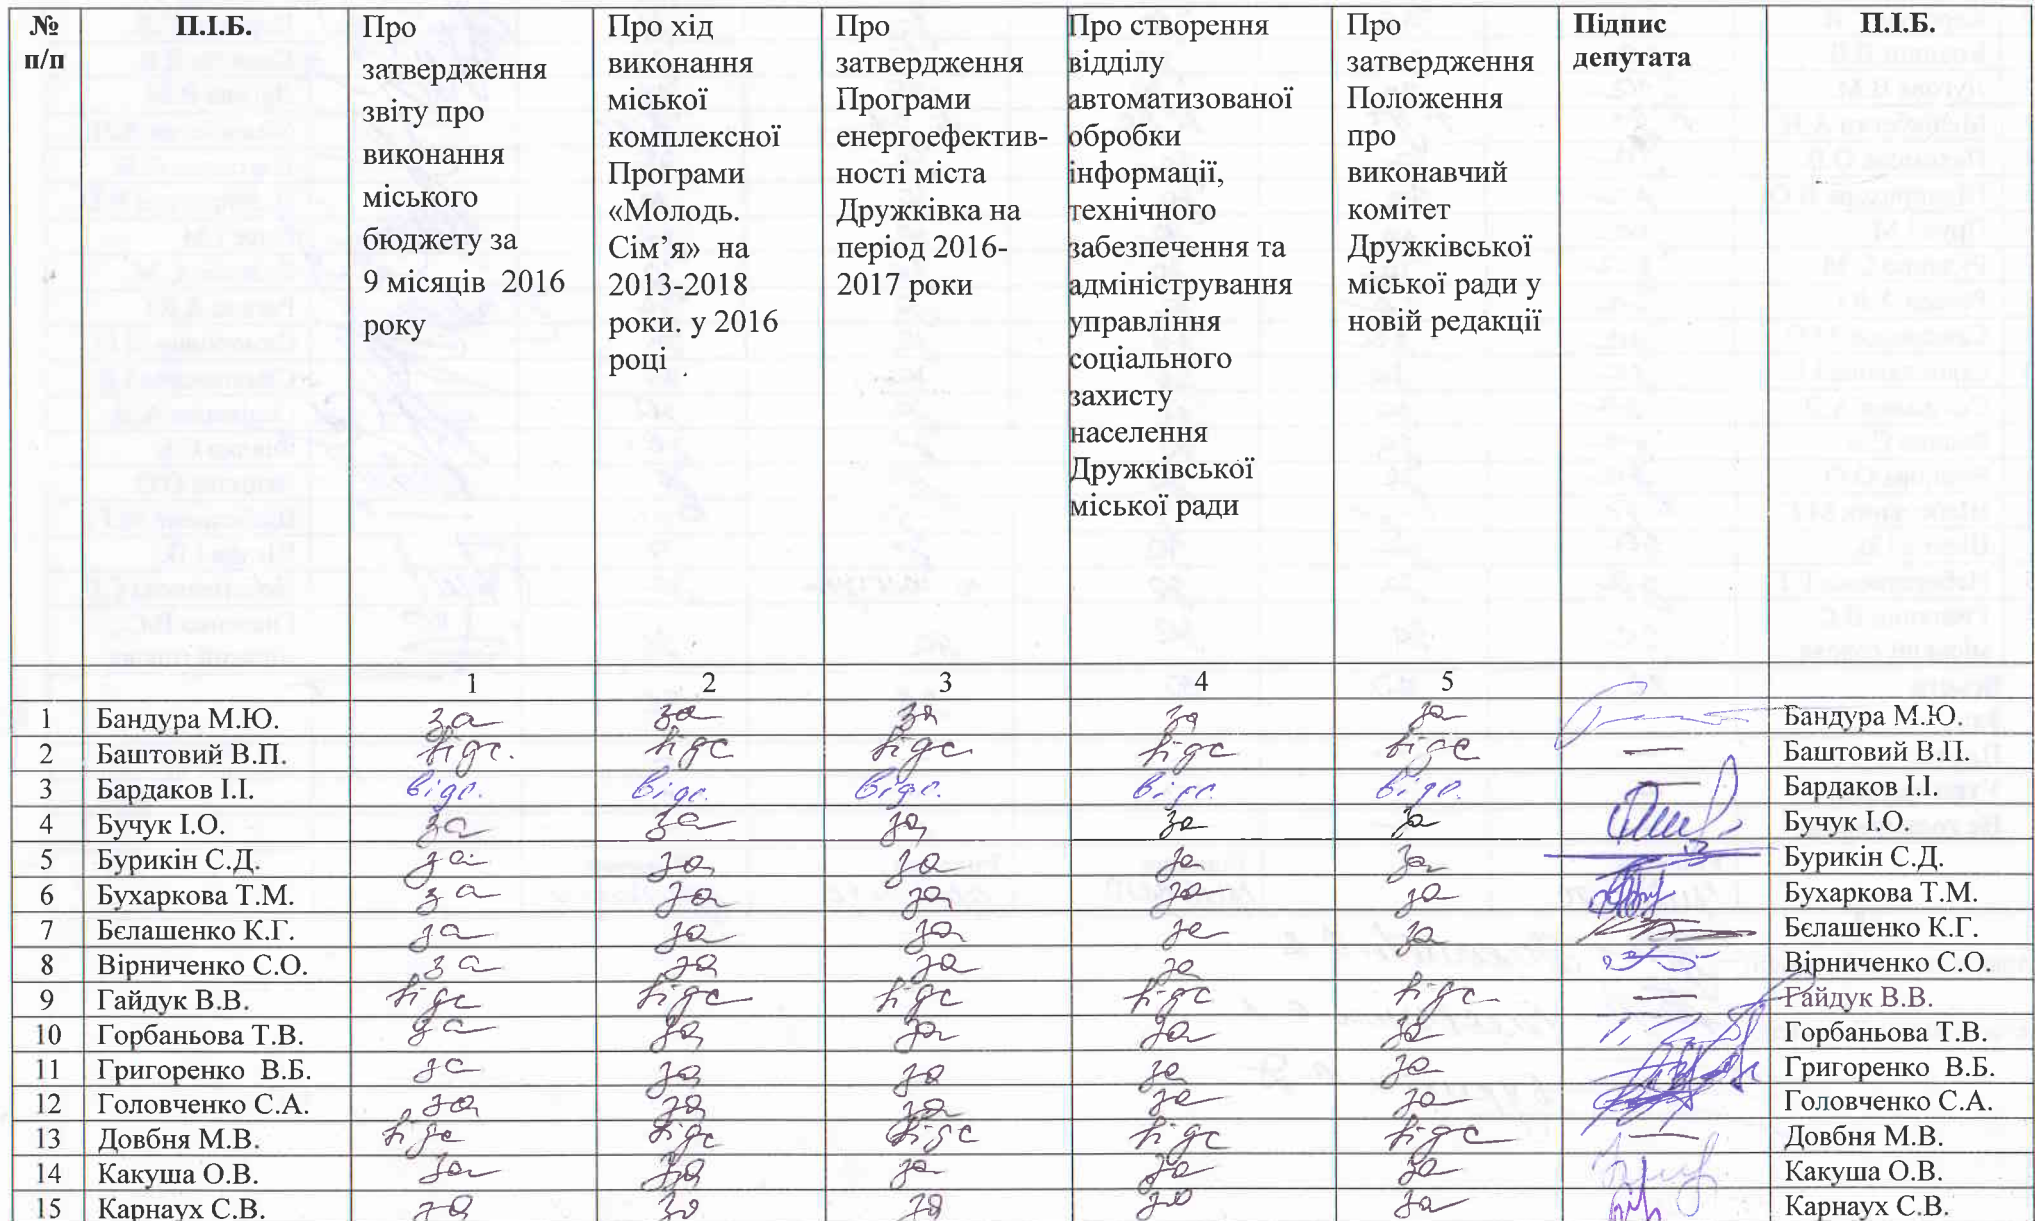 № п/п П.І.Б. Про затвердження звіту про виконання міського бюджету за 9 місяців 2016 року Про хід виконання міської комплексної Програми «Молодь. Сім’я» на 2013-2018 роки. у 2016 році Про затвердження Програми енергоефектив-ності міста Дружківка на період 2016-2017 роки Про створення відділу автоматизованої обробки інформації, технічного забезпечення та адміністрування управління соціального захисту населення Дружківської міської ради Про затвердження Положення про виконавчий комітет Дружківської міської ради у новій редакції Підпис депутата П.І.Б.
1 2 3 4 5
1 Бандура М.Ю. за за за за за Бандура М.Ю.
2 Баштовий В.П. відс. відс відс відс відс — Баштовий В.П.
3 Бардаков І.І. відс. відс. відс. відс. відс. — Бардаков І.І.
4 Бучук І.О. за за за за за Бучук І.О.
5 Бурикін С.Д. за за за за за Бурикін С.Д.
6 Бухаркова Т.М. за за за за за Бухаркова Т.М.
7 Бєлашенко К.Г. за за за за за Бєлашенко К.Г.
8 Вірниченко С.О. за за за за Вірниченко С.О.
9 Гайдук В.В. відс відс відс відс відс — Гайдук В.В.
10 Горбаньова Т.В. за за за за за Горбаньова Т.В.
11 Григоренко В.Б. за за за за за Григоренко В.Б.
12 Головченко С.А. за за за за за Головченко С.А.
13 Довбня М.В. відс відс відс відс відс — Довбня М.В.
14 Какуша О.В. за за за за за Какуша О.В.
15 Карнаух С.В. за за за за за Карнаух С.В.